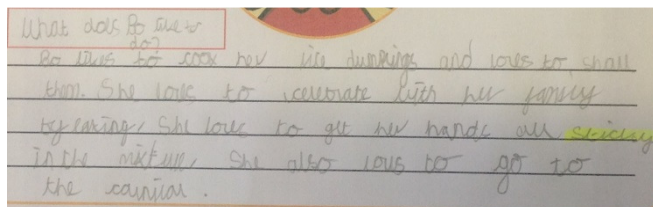 What does Bo like to
do?
Bo likes to cook her rice dumplings and loves to shall
them. She loves to celebrate with her family
by eating. She loves to get her hands all sticky
in the mixture. She also loves to go to
the